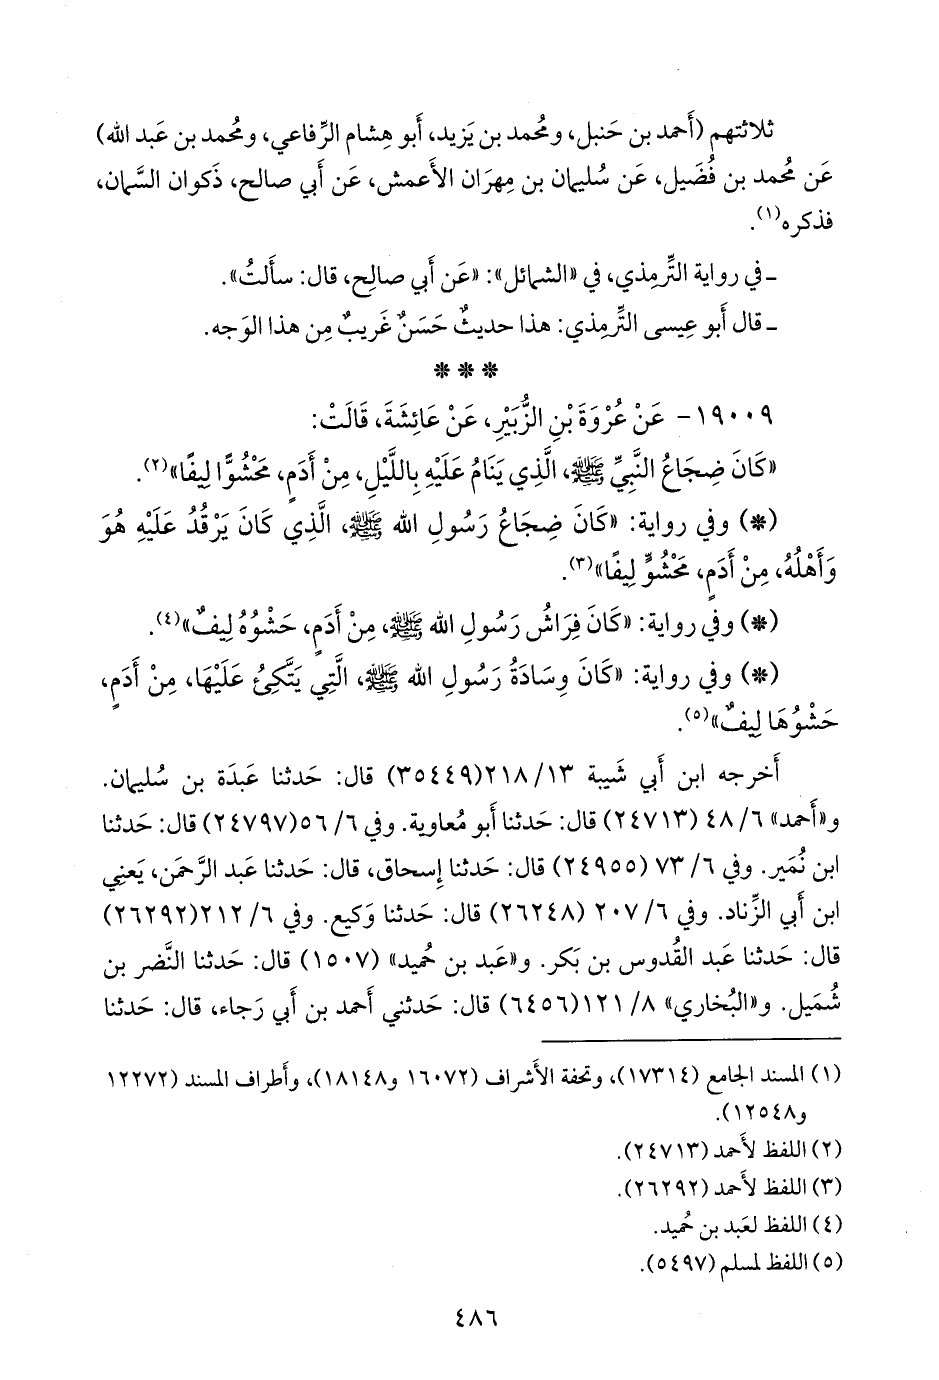 ثلاثتهم (أَحمد بن حَنبل، ومُحمد بن يَزيد، أَبو هِشام الرِّفاعي، ومُحمد بن عَبد الله)
عَن مُحمد بن فُضَيل، عَن سُليمان بن مِهرَان الأَعمش، عَن أَبي صالح، ذَكوان السَّمان،
فذكره(١).
ـ في رواية التِّرمِذي، في «الشمائل»: «عَن أَبي صالِح، قال: سأَلتُ».
ـ قال أَبو عِيسى التِّرمِذي: هذا حديثٌ حَسَنٌ غَريبٌ مِن هذا الوَجه.
* * *
١٩٠٠٩- عَنْ عُرْوَةَ بْنِ الزُّبَيْرِ، عَنْ عَائِشَةَ، قَالَتْ:
«كَانَ ضِجَاعُ النَّبِيِّ ﷺ، الَّذِي يَنَامُ عَلَيْهِ بِاللَّيْلِ، مِنْ أَدَمٍ، مَحْشُوًّا لِيفًا»(٢).
(*) وفي رواية: «كَانَ ضِجَاعُ رَسُولِ الله ﷺ، الَّذِي كَانَ يَرْقُدُ عَلَيْهِ هُوَ
وَأَهْلُهُ، مِنْ أَدَمٍ، مَحْشُوٍّ لِيفًا»(٣).
(*) وفي رواية: «كَانَ فِرَاشُ رَسُولِ الله ﷺ، مِنْ أَدَمٍ، حَشْوُهُ لِيفٌ»(٤).
(*) وفي رواية: «كَانَ وِسَادَةُ رَسُولِ الله ﷺ، الَّتِي يَتَّكِئُ عَلَيْهَا، مِنْ أَدَمٍ،
حَشْوُهَا لِيفٌ»(٥).
أَخرجه ابن أَبي شَيبة ١٣/ ٢١٨(٣٥٤٤٩) قال: حَدثنا عَبدَة بن سُليمان.
و«أَحمد» ٦/ ٤٨ (٢٤٧١٣) قال: حَدثنا أَبو مُعاوية. وفي ٦/ ٥٦(٢٤٧٩٧) قال: حَدثنا
ابن نُمَير. وفي ٦/ ٧٣ (٢٤٩٥٥) قال: حَدثنا إِسحاق، قال: حَدثنا عَبد الرَّحمَن، يَعنِي
ابن أَبي الزِّناد. وفي ٦/ ٢٠٧ (٢٦٢٤٨) قال: حَدثنا وَكيع. وفي ٦/ ٢١٢(٢٦٢٩٢)
قال: حَدثنا عَبد القُدوس بن بَكر. و«عَبد بن حُميد» (١٥٠٧) قال: حَدثنا النَّضر بن
شُمَيل. و«البُخاري» ٨/ ١٢١(٦٤٥٦) قال: حَدثني أَحمد بن أَبي رَجاء، قال: حَدثنا
(١) المسند الجامع (١٧٣١٤)، وتحفة الأَشراف (١٦٠٧٢ و١٨١٤٨)، وأَطراف المسند (١٢٢٧٢
و١٢٥٤٨).
(٢) اللفظ لأَحمد (٢٤٧١٣).
(٣) اللفظ لأَحمد (٢٦٢٩٢).
(٤) اللفظ لعَبد بن حُميد.
(٥) اللفظ لمسلم (٥٤٩٧).
٤٨٦